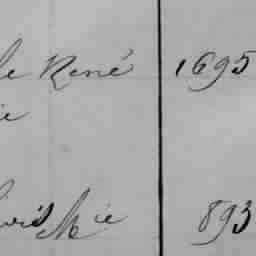 le René 1695
ie
Mie 893